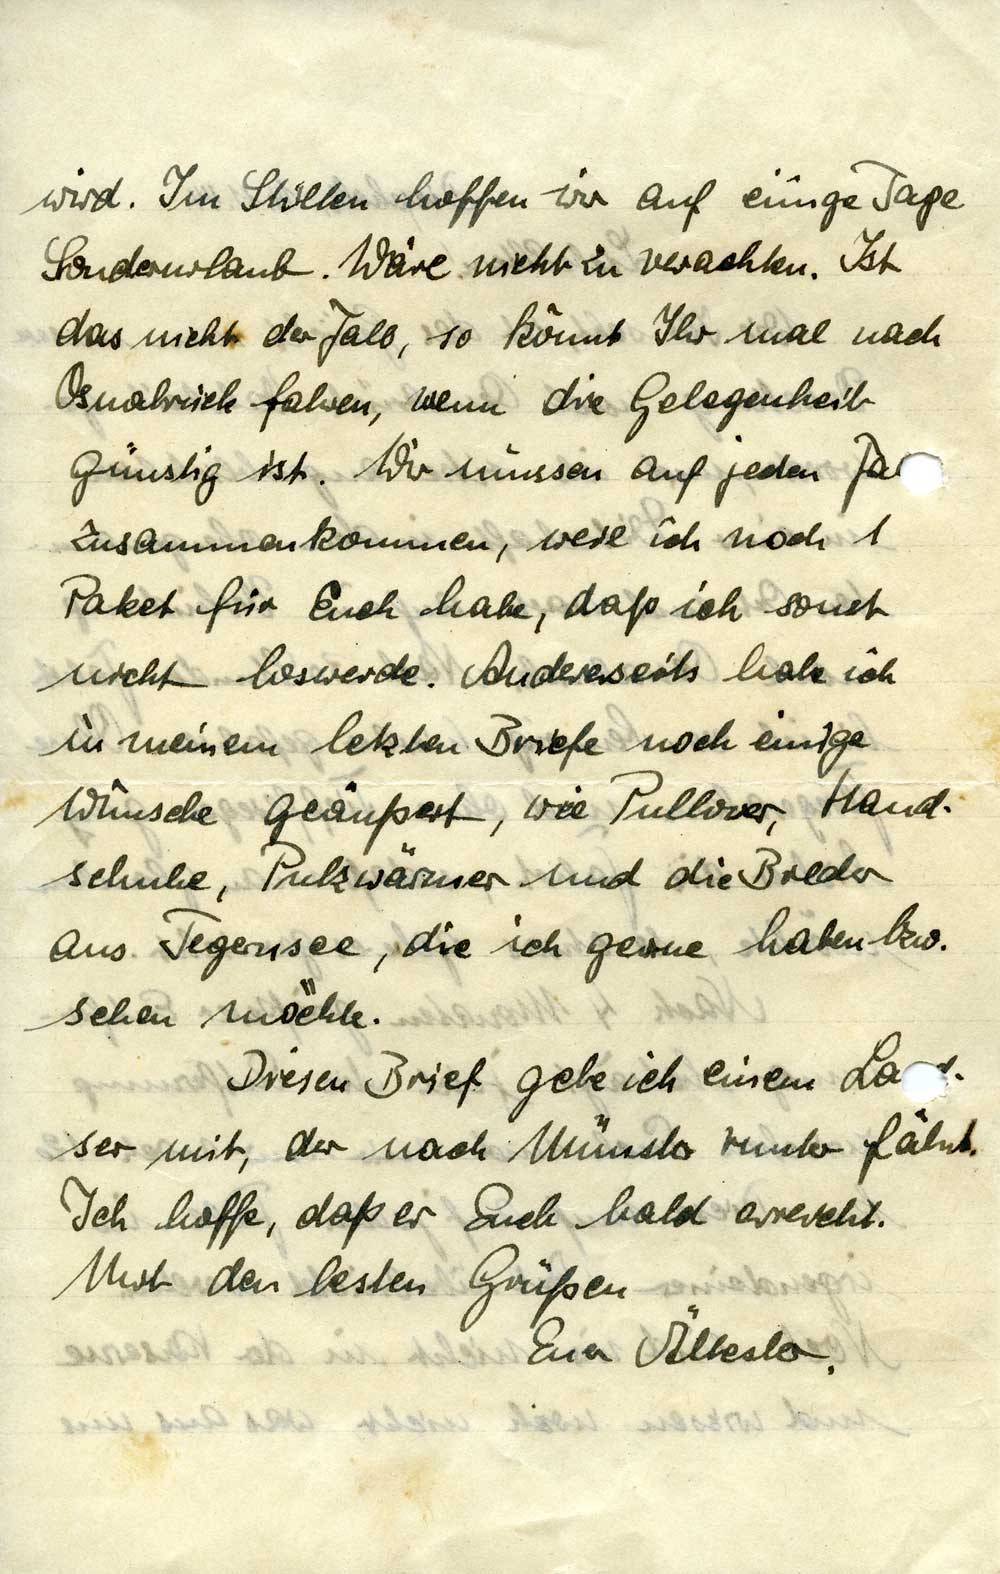 wird. Im Stillen hoffen wir auf einige Tage
Sonderurlaub. Wäre nicht zu verachten. Ist
das nicht der Fall, so könnt Ihr mal nach
Osnabrück fahren, wenn die Gelegenheit
günstig ist. Wir müssen auf jeden Fa
zusammenkommen, weil ich noch 1
Paket für Euch habe, daß ich sonst
nicht loswerde. Andererseits habe ich
in meinem letzten Briefe noch einige
Wünsche geäußert, wie Pullover, Hand-
schuhe, Pulswärmer und die Bilder
aus Tegernsee, die ich gerne haben bzw.
sehen möchte.
Diesen Brief gebe ich einem Land-
ser mit, der nach Münster runter fährt.
Ich hoffe, daß er Euch bald erreicht.
Mit den besten Grüßen
Euer Ältester.